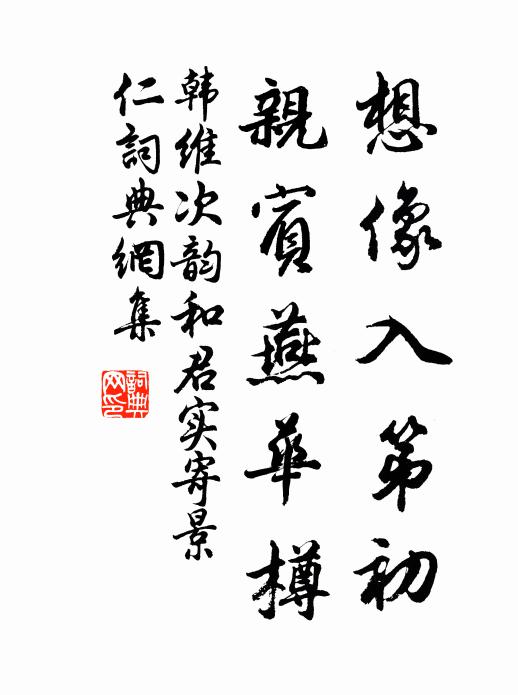 想像入第初
親賓燕華樽
韩维次韵和君实寄景
仁詞典網集
詞典网印